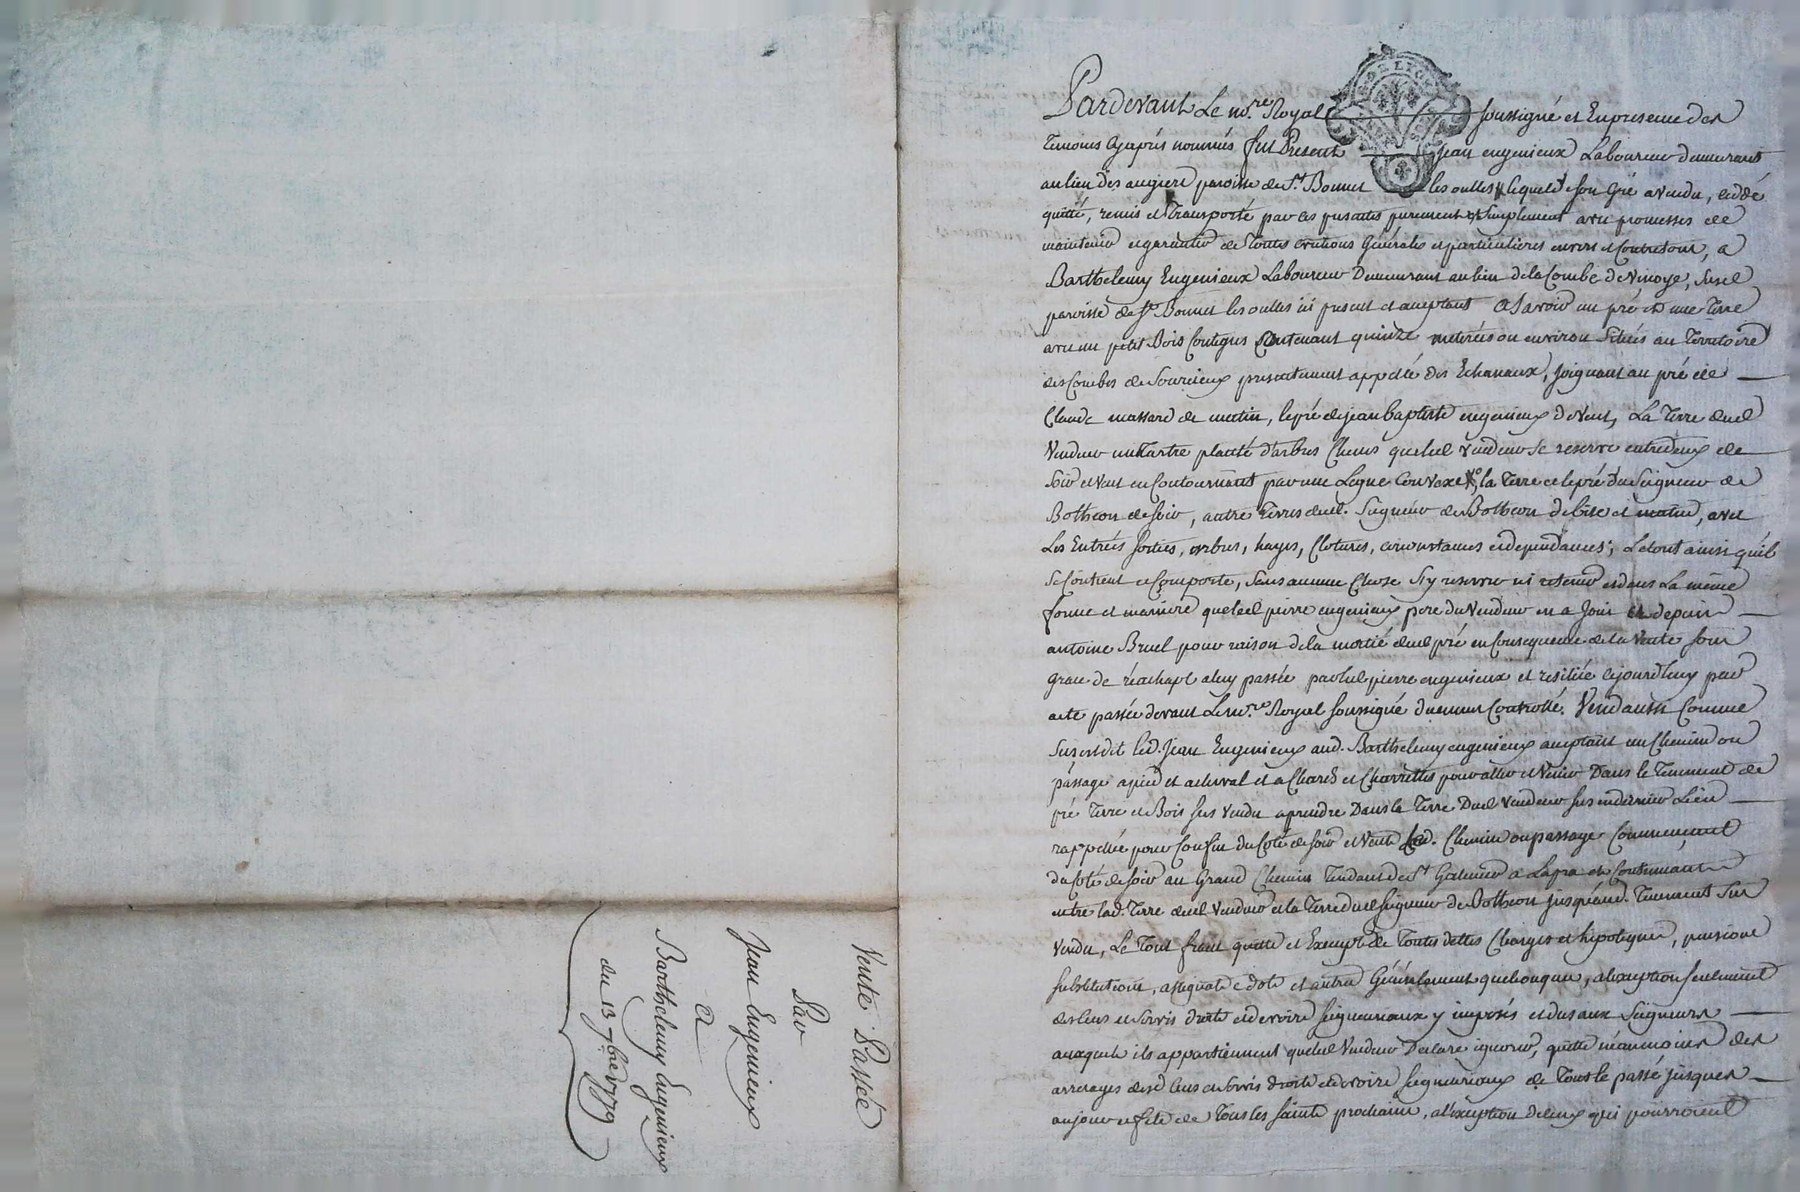 Vente Passée
Par
Jean Engenieux
a
Barthelemy Engenieux
du 13 7bre 1779
Pardevant Le no.re Royal soussigné et En presence des
Temoins cy après nommés fut Present Jean engenieux Laboureur demeurant
au lieu des augiere paroisse de St. Bonnet les oulles lequel de son Gré a vendu, ceddé
quitté, remis et Transporté par ces presentes purement et Simplement avec promesses de
maintenir et garantir de Toutes evictions Générales et particulieres envers et Contre tous, a
Barthelemy Engenieux Laboureur Demeurant au lieu de la Combe de Vinoye, susd
paroisse de St. Bonnet les oulles ici present et acceptant a Savoir un pré et une Terre
avec un petit Bois Contigus Contenant quinze meterées ou environ Situés au Territoire
des Combes de Sourcieux presentement appellé des Echanaux, Joignant au pré de
Claude massard de matin, le pré de jean baptiste engenieux de Vent, La Terre dud
Vendeur un tartre planté d'arbres Chenes que led vendeur se reserve entredeux de
Soir et Vent en Contournant par une Ligne Convexe, la Terre et le pré du Seigneur de
Botheon de soir, autre Terres dud. Seigneur de Botheon de bise et matin, avec
Les Entrées sorties, arbres, hayes, Clotures, circonstances et dependances; Le tout ainsi qu'il
se Contient et Comporte, sans aucune Chose s'y reserver ni retenir et dans La même
forme et maniere que led pierre engenieux pere du Vendeur en a Joui et depuis
antoine Bruel pour raison de la moitié dud pré en Consequence de la Vente sous
grace de réachapt a luy passée par led pierre engenieux et resiliée cejourdhuy par
acte passée devant Le no.re Royal soussigné duement Controllé. Vend aussi Comme
Sus est dit led. Jean Engenieux aud. Barthelemy engenieux acceptant un Chemin ou
passage a pied et a cheval et a Chards et Charrettes pour aller et Venir Dans le Tenement de
pré Terre et Bois sus Vendu a prendre Dans la Terre Dud Vendeur sus en dernier Lieu
rappellée pour Confin du Coté de soir et Vent Led. Chemin ou passage Commencent
du Coté de soir au Grand Chemin Tendant de St. Galmier a Lapra et Continuant
entre lad. Terre dud Vendeur et la Terre dud seigneur de Botheon jusqu'aud. Tenement Sus
Vendu, Le Tout franc quitte et Exempt de Toutes dettes Charges et hipoteques, pensions
substitutions, assignats de dote et autres Générallement quelconques, a l'exception seulement
des Cens et Servis droits et devoirs seigneuriaux y imposés et dus aux Seigneurs
auxquels ils appartiennent que led Vendeur Declare ignorer, quitte néanmoins des
arrerages desd Cens et Servis droits et devoirs seigneuriaux de Tout le passé jusques
au jour et fete de Tous les Saints prochain, a l'exception de ceux qui pourroient